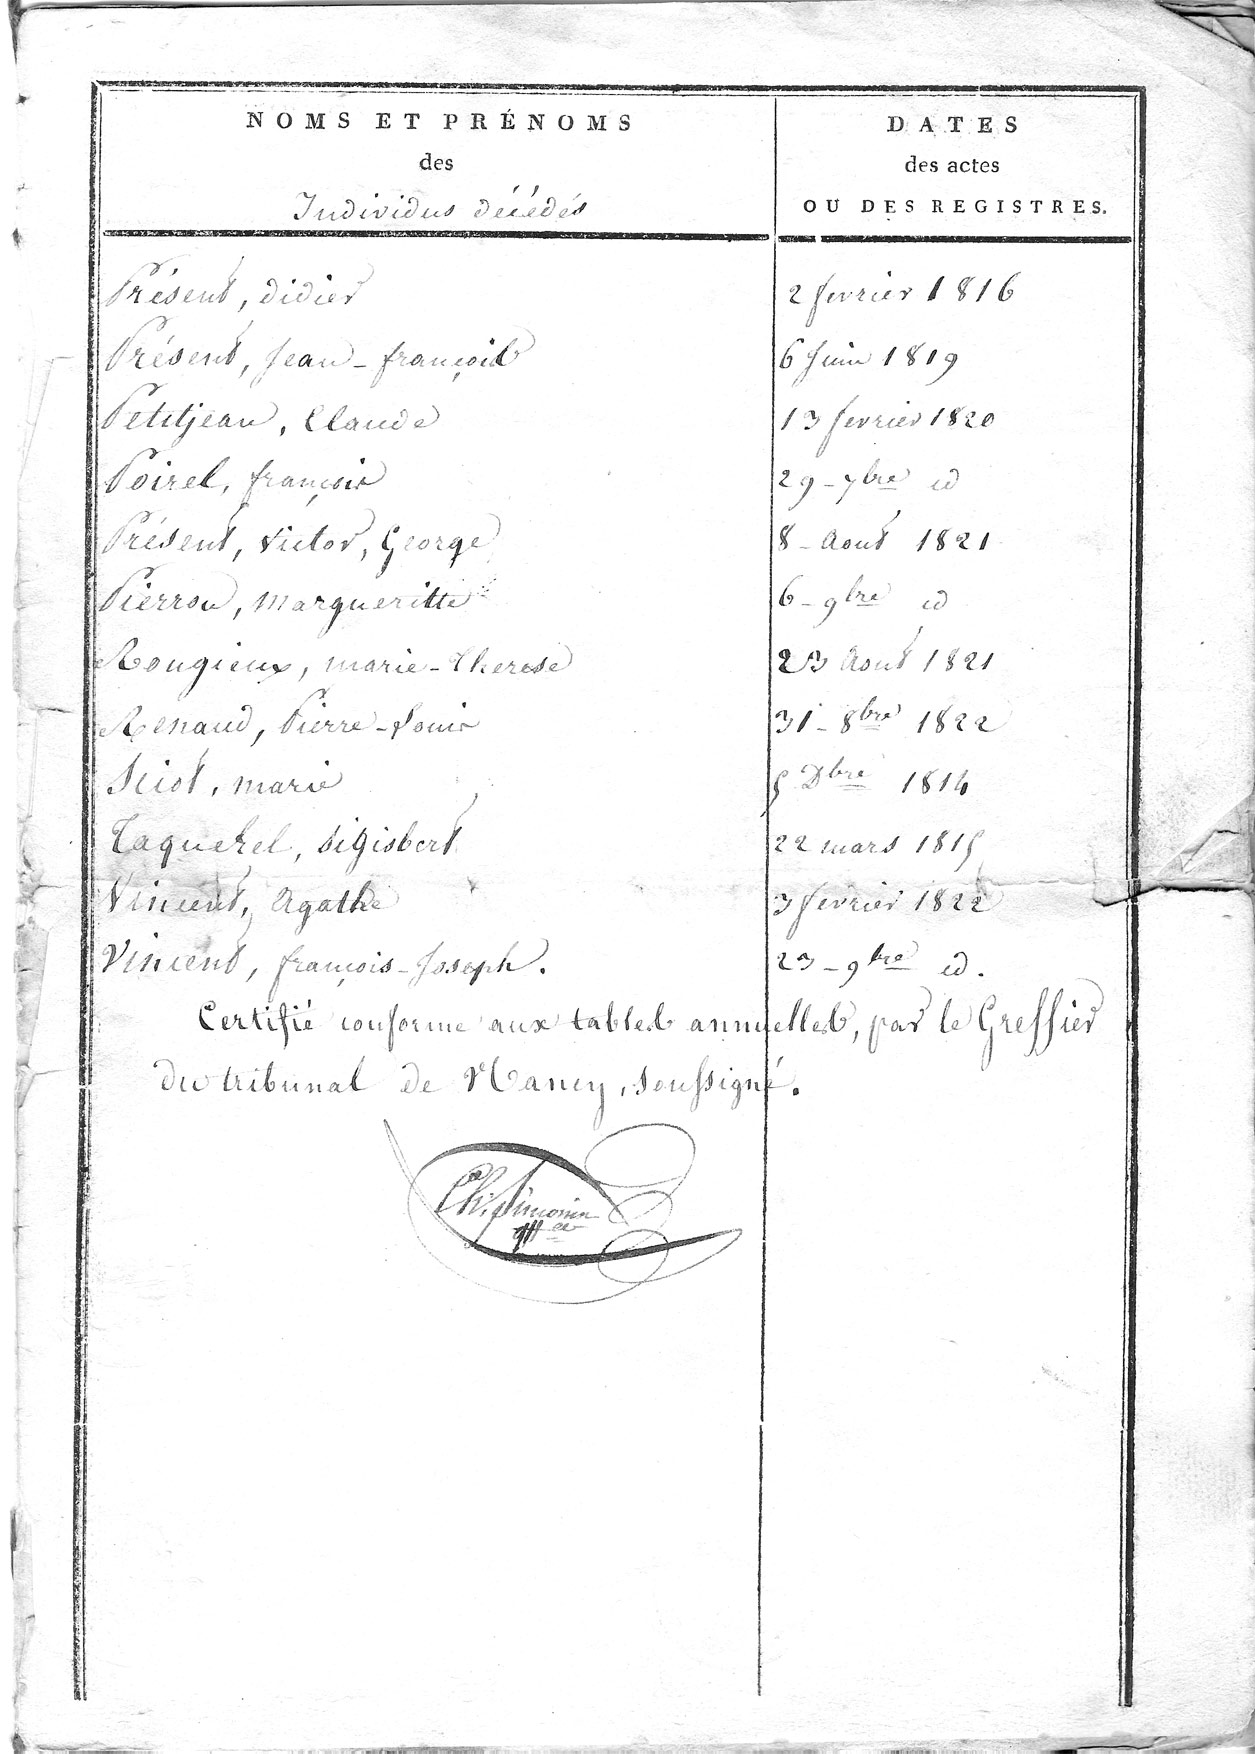 NOMS ET PRÉNOMS
des
Individus décédés
DATES
des actes
OU DES REGISTRES.
Présent, didier 2 fevrier 1816
Présent, Jean-françois 6 Juin 1819
Petitjean, Claude 13 fevrier 1820
Poirel, françois 29-7bre id
Présent, Victor, George 8-Aout 1821
Pierron, Margueritte 6-9bre id
Rougieux, marie-Therese 23 Aout 1821
Renaud, Pierre-Louis 31-8bre 1822
Sciot, marie 5 Dbre 1814
Taquerel, Sigisbert 22 mars 1815
Vincent, Agathe 3 fevrier 1822
Vincent, françois-Joseph. 23-9bre id.
Certifié conforme aux tables annuelles, par le Greffier
du tribunal de Nancy, soussigné.
Ch. Simonin